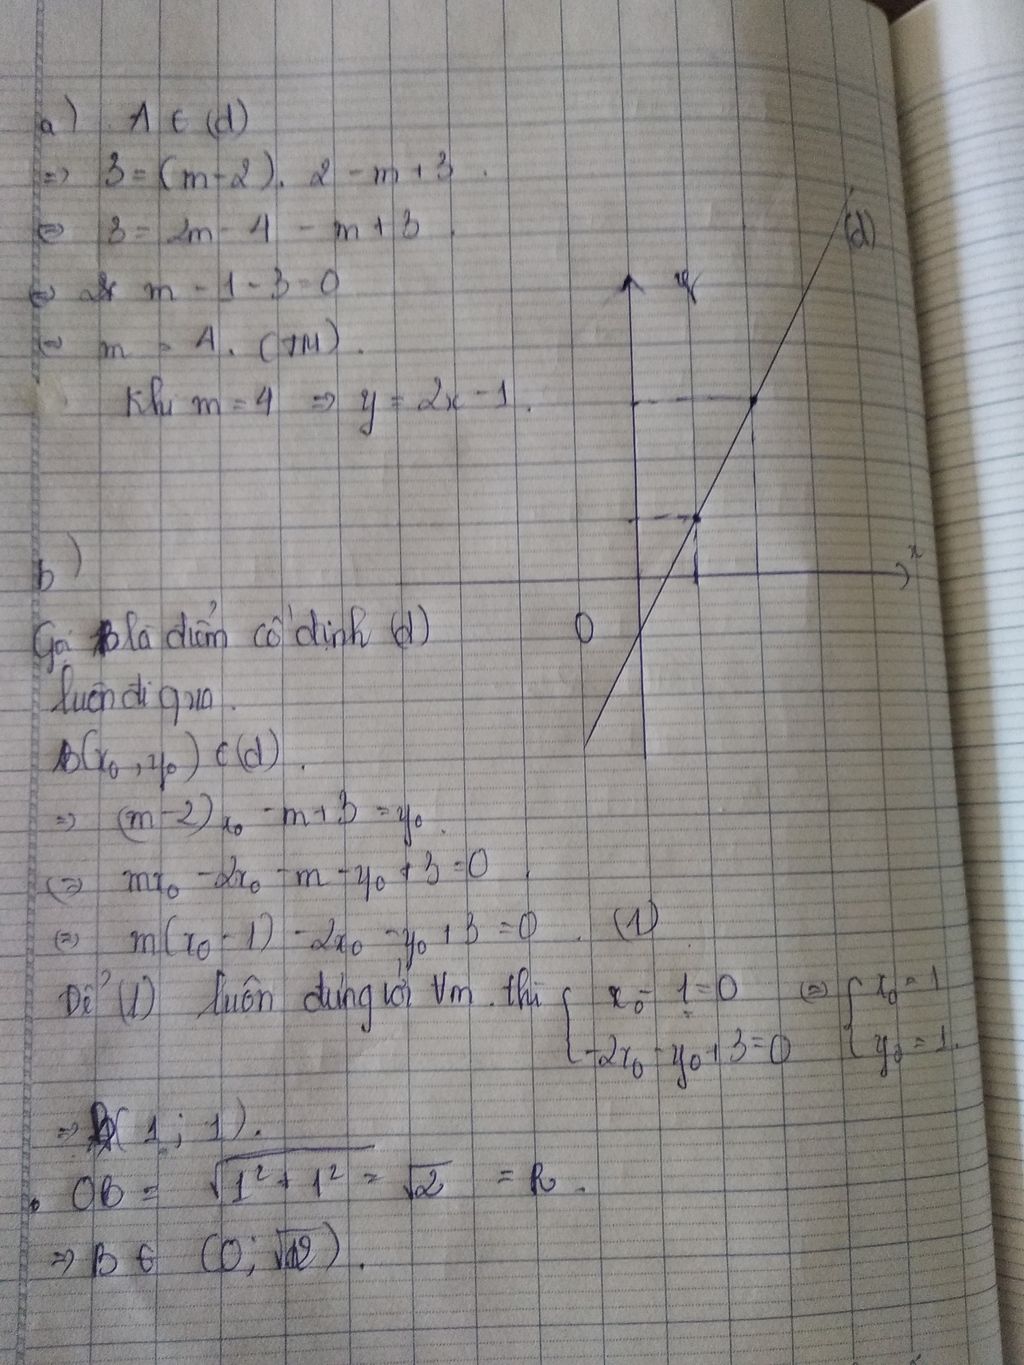 a) A ∈ (d)
=> 3 = (m-2). 2 - m + 3.
<=> 3 = 2m - 4 - m + 3
<=> m - 1 - 3 = 0
<=> m = 4. (TM).
Khi m = 4 => y = 2x - 1.
y
(d)
x
O
b)
Gọi B là điểm cố định (d)
luôn đi qua.
B(x₀, y₀) ∈ (d).
=> (m-2)x₀ - m + 3 = y₀.
<=> mx₀ - 2x₀ - m - y₀ + 3 = 0
<=> m(x₀ - 1) - 2x₀ - y₀ + 3 = 0. (1)
Để (1) luôn đúng với ∀m thì { x₀ - 1 = 0 <=> { x₀ = 1
-2x₀ - y₀ + 3 = 0 y₀ = 1.
=> B(1; 1).
OB = √(1² + 1²) = √2 = R.
=> B ∈ (O; √2).